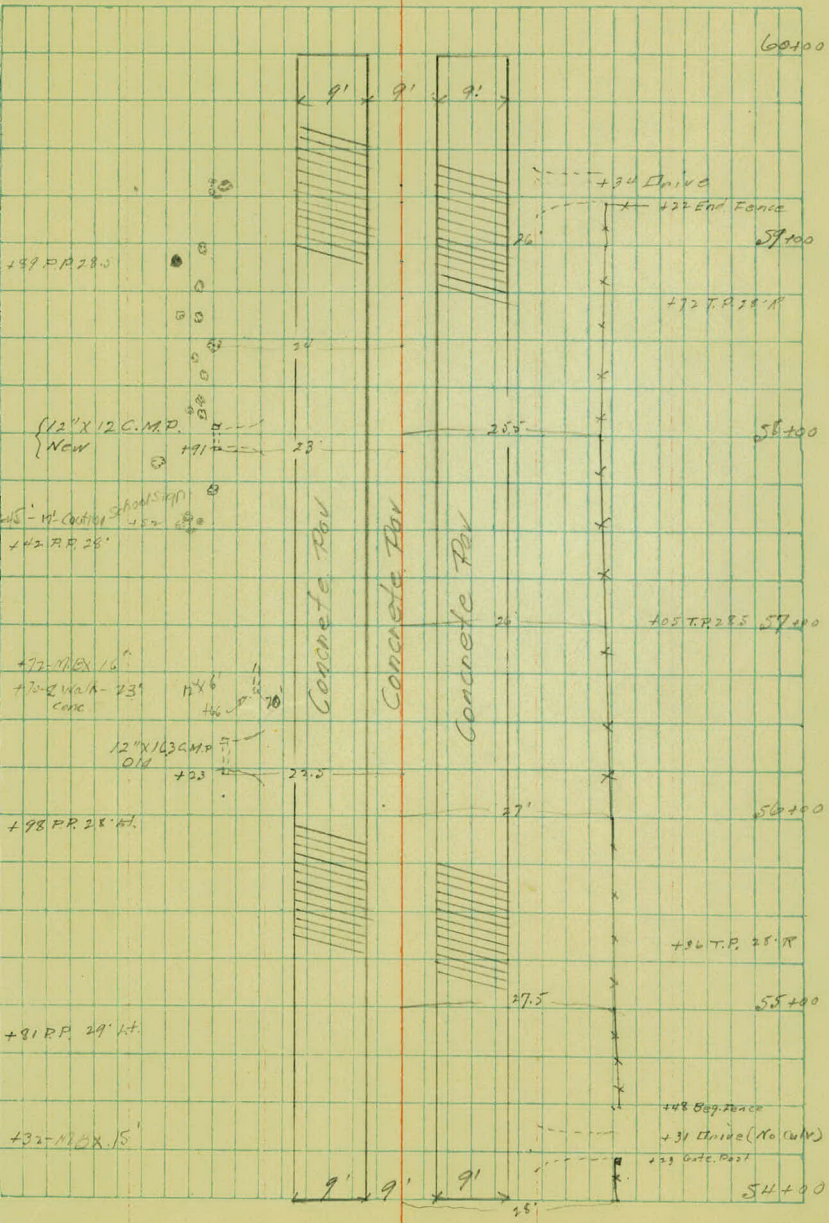 60+00
9' 9' 9'
+34 Drive
+22 End Fence
26'
59+00
+89 P.P. 28.5
+72 T.P. 28' R
24
12" X 12 C.M.P.
New
+91
23
25.5
58+00
School Sign
+52
+42 P.P. 28'
Concrete Pav
Concrete Pav
Concrete Pav
26
+05 T.P. 28.5
57+00
+72-M.BX 16'
+70-℄ Walk- 23'
conc
12"X6'
+66
20'
12"X16.3 C.M.P
Old
+23
22.5
+98 P.P. 28' Lt.
27'
56+00
+36 T.P. 28' R
27.5
55+00
+81 P.P. 29' Lt.
+48 Beg. Fence
+32-M.BX. 15'
+31 Drive (No Culv)
+23 Gate Post
9' 9' 9'
28'
54+00